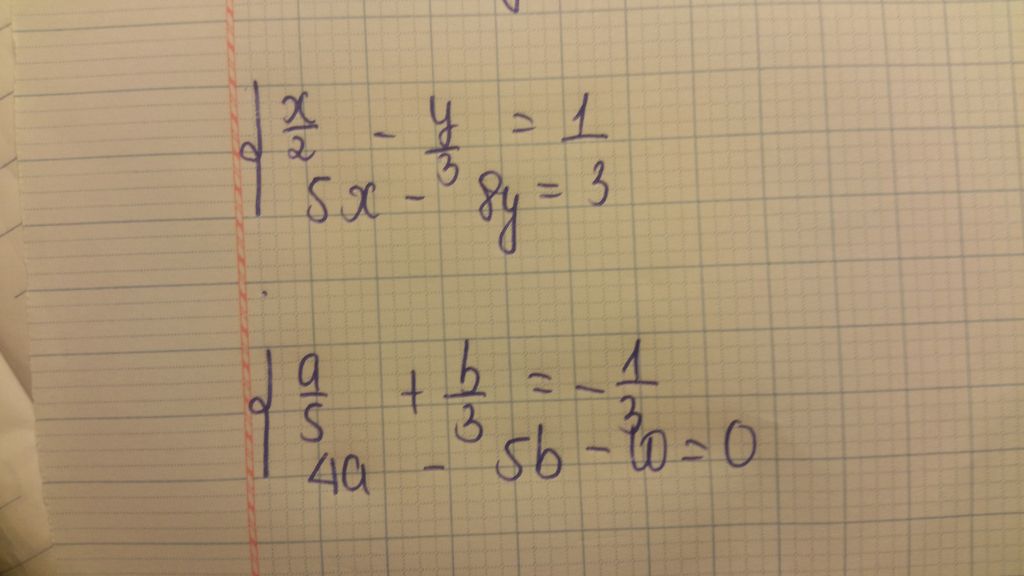 x/2 - y/3 = 1
5x - 8y = 3
a/5 + b/3 = -1/3
4a - 5b - 10 = 0